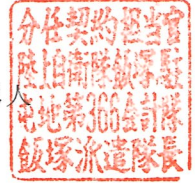 分任契約担当官
陸上自衛隊飯塚駐
屯地第366会計隊
飯塚派遣隊長